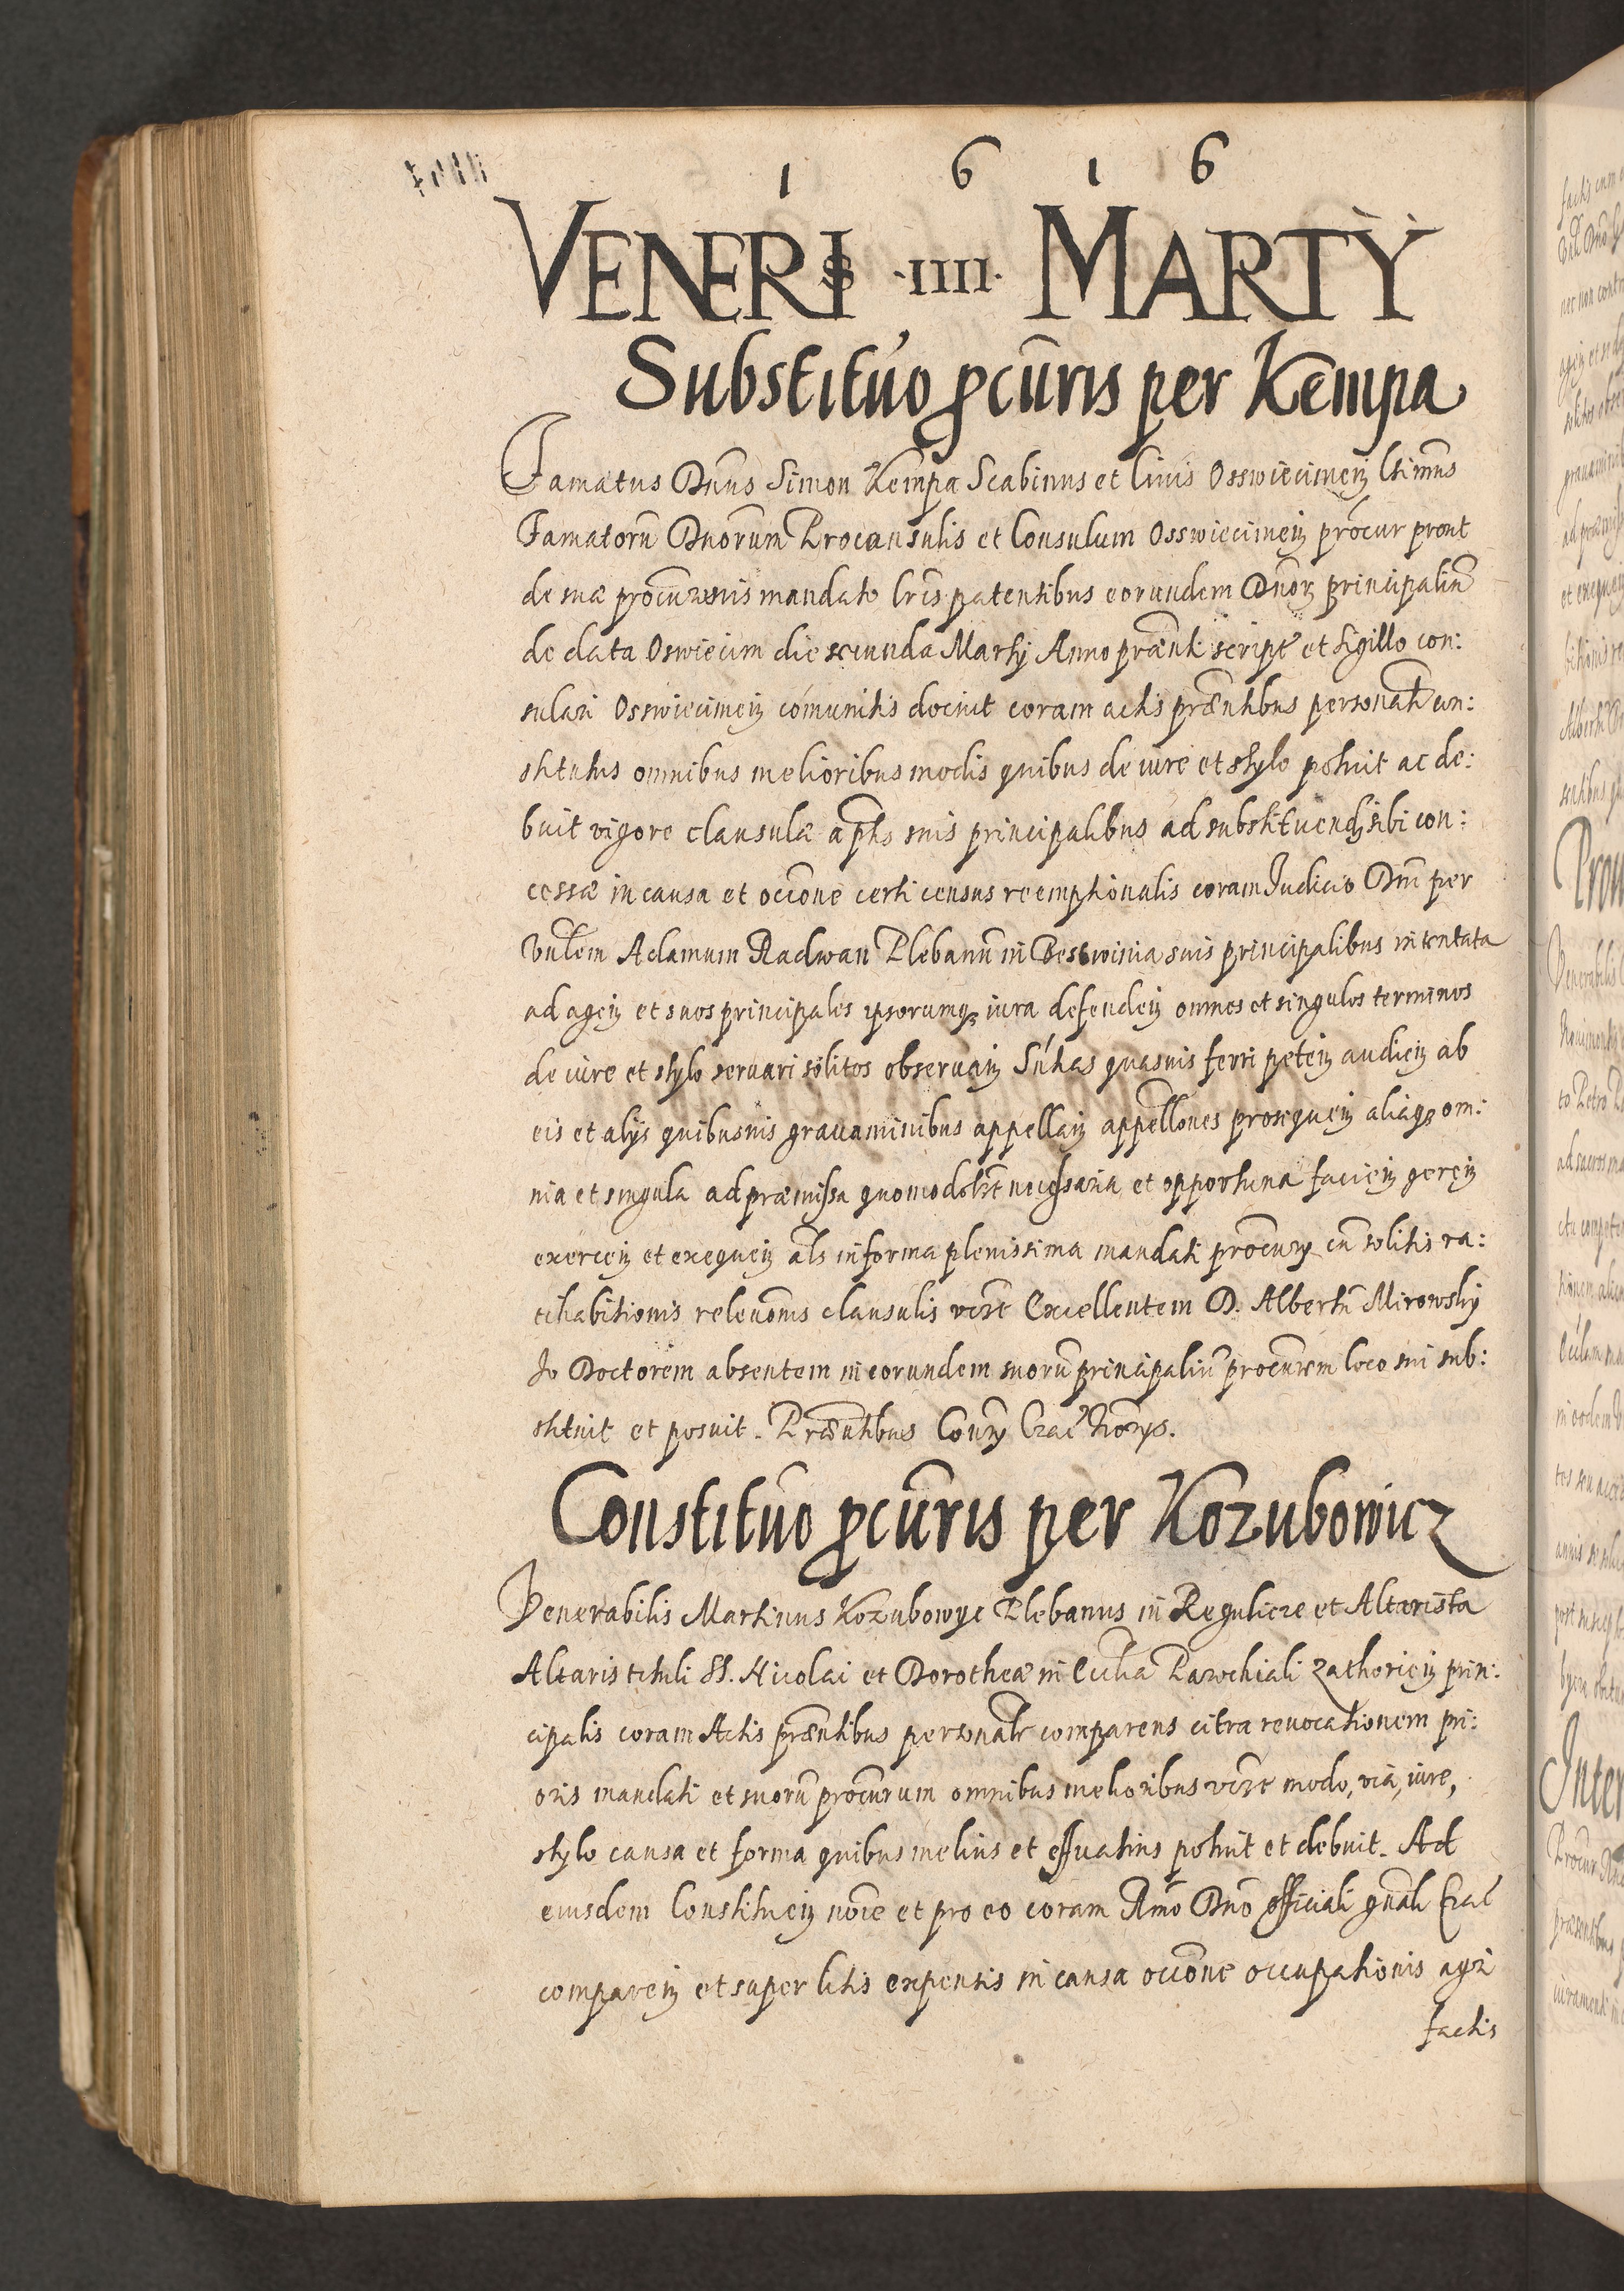 1 6 1 6
VENERIS ·IIII· MARTY
Substituo pcuris per Kempa
Famatus Dnus Simon Kempa Scabinus et Civis Osswiecimen ltimus
Famatoru Dnorum Proconsulis et Consulum Osswiecimen procur prout
de suae procuronis mandato lris patentibus eorundem Dnor principaliu
de data Oswiecim die secunda Martij Anno praenti script et sigillo con:
sulari Osswiecimen comunitis docuit coram actis praentibus personatr con:
stitutus omnibus melioribus modis quibus de iure et stylo potuit ac de:
buit vigore clausulae a ptis suis principalibus ad substituend sibi con:
cessae in causa et occone certi census reemptionalis coram Judicio Dni per
Vnlem Adamum Radwan Plebanu in Bestwinia suis principalibus intentata
ad agen et suos principales ipsorumq iura defenden omnes et singulos terminos
de iure et stylo servari solitos observan Sntias quasuis ferri peten audien ab
eis et alijs quibusuis gravaminibus appellan appellones prosequen aliaq om:
nia et singula ad praemissa quomodolibet necessaria et opportuna facien geren
exercen et exequen als in forma plenissima mandati procur cu solitis ra:
tihabitionis relevonis clausulis Excellentem D. Albertu Mirowsky
Jo Doctorem absentem in eorundem suoru principaliu procurem loco sui sub:
stituit et posuit. Praentibus Crac
Constituo pcuris per Kozubowicz
Venerabilis Martinus Kozubowyc Plebanus in Regulicze et Altarista
Altaris tituli SS. Nicolai et Dorotheae in Ecclia Parochiali Zathorien prin:
cipalis coram Actis praentibus personalr comparens citra revocationem pri:
oris mandati et suoru procurum omnibus melioribus modo, via, iure,
stylo causa et forma quibus melius et efficatius potuit et debuit. Ad
eiusdem Constituen noie et pro eo coram Rmo Dno officiali gnali Crac
comparen et super litis expensis in causa occone occupationis agri
factis